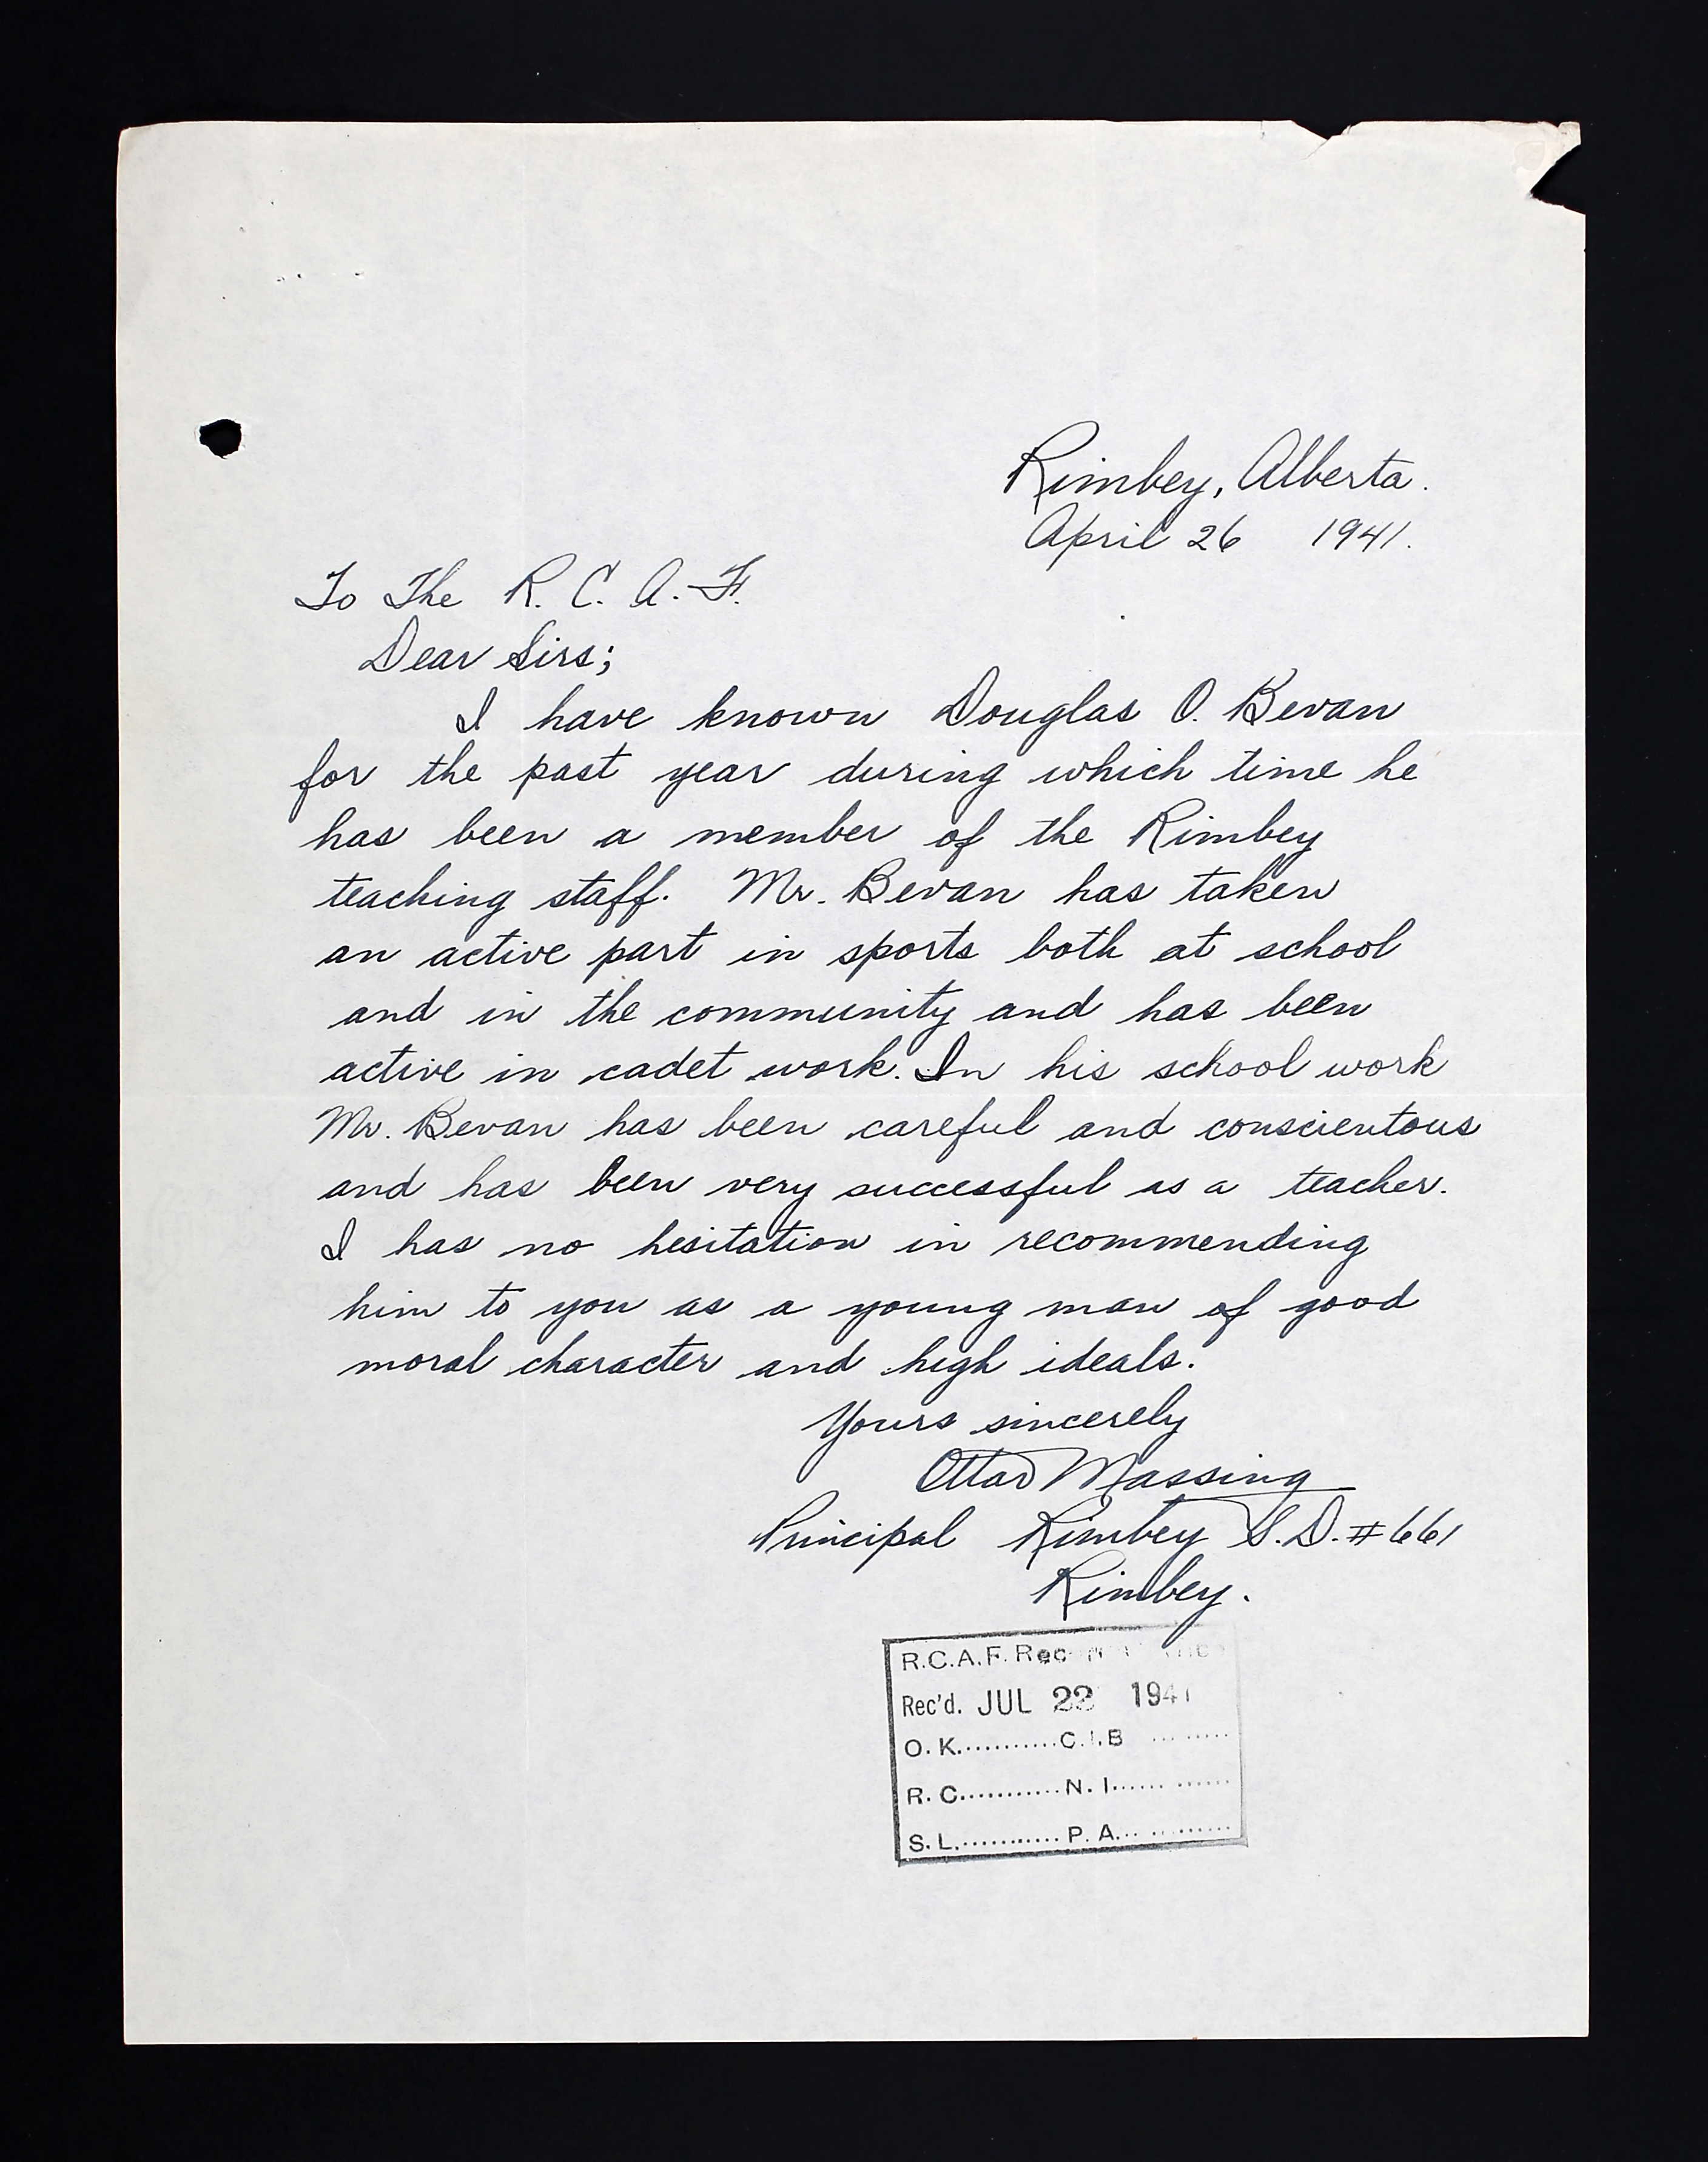 Rimbey, Alberta.
April 26 1941.
To The R. C. A. F.
Dear Sirs;
I have known Douglas O. Bevan
for the past year during which time he
has been a member of the Rimbey
teaching staff. Mr. Bevan has taken
an active part in sports both at school
and in the community and has been
active in cadet work. In his school work
Mr. Bevan has been careful and conscientous
and has been very successful as a teacher.
I has no hesitation in recommending
him to you as a young man of good
moral character and high ideals.
Yours sincerely
Ottar Massing
Principal Rimbey S.D. #661
Rimbey.
R.C.A.F.
Rec'd. JUL 22 1941
O. K...........C.I.B.........
R. C...........N. I............
S. L...........P. A............